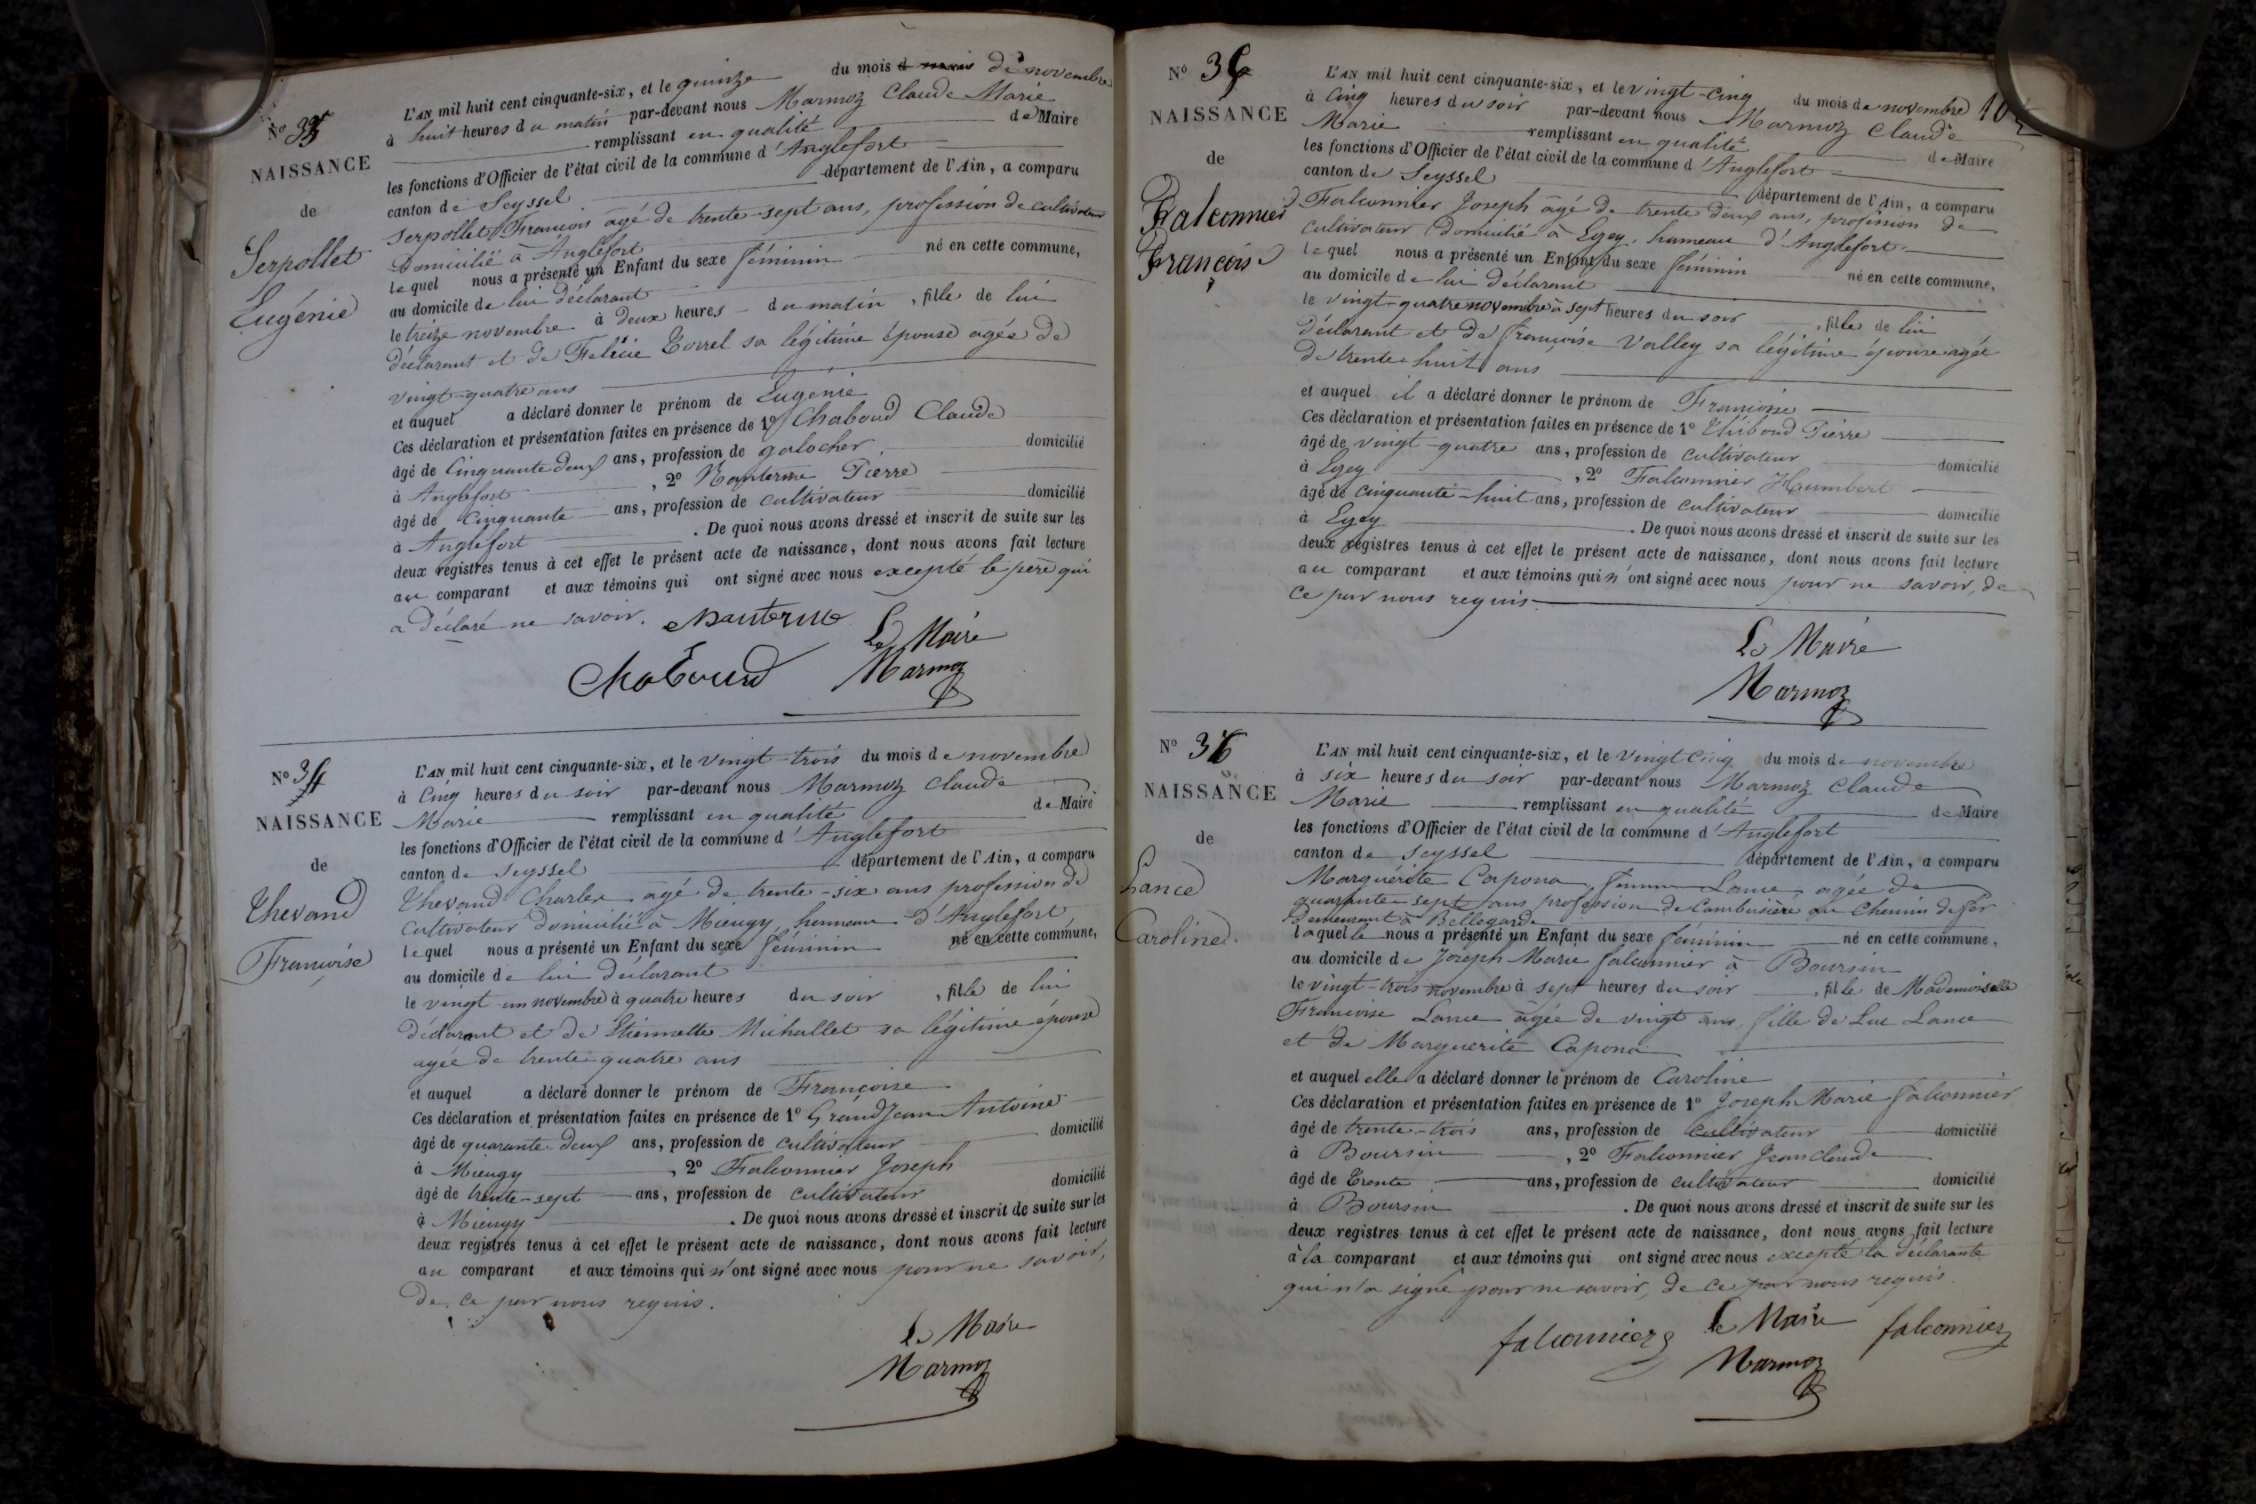 No 33
NAISSANCE
de
Serpollet
Eugénie
L'AN mil huit cent cinquante-six, et le quinze du mois de novembre
à huit heures du matin par-devant nous Marmoz Claude Marie
remplissant en qualité de Maire
les fonctions d'Officier de l'état civil de la commune d'Anglefort
canton de Seyssel département de l'Ain, a comparu
Serpollet François agé de trente-sept ans, profession de cultivateur
Domicilié à Anglefort
lequel nous a présenté un Enfant du sexe féminin né en cette commune,
au domicile de lui déclarant
le treize novembre à deux heures du matin, fille de lui
déclarant et de Felicie sa légitime épouse agée de
vingt-quatre ans
et auquel a déclaré donner le prénom de Eugénie
Ces déclaration et présentation faites en présence de 1º Chaboud Claude
âgé de Cinquante deux ans, profession de galocher domicilié
à Anglefort, 2º Nanterme Pierre
âgé de Cinquante ans, profession de cultivateur domicilié
à Anglefort. De quoi nous avons dressé et inscrit de suite sur les
deux registres tenus à cet effet le présent acte de naissance, dont nous avons fait lecture
au comparant et aux témoins qui ont signé avec nous excepté le père qui
a déclaré ne savoir. Nanterme
Le Maire
Chaboud Marmoz
No 34
NAISSANCE
de
Thevand
Françoise
L'AN mil huit cent cinquante-six, et le vingt-trois du mois de novembre
à Cinq heures du soir par-devant nous Marmoz Claude
Marie remplissant en qualité de Maire
les fonctions d'Officier de l'état civil de la commune d'Anglefort
canton de Seyssel département de l'Ain, a comparu
Thevand Charles agé de trente-six ans profession de
Cultivateur domicilié à Mieugy, hameau d'Anglefort
lequel nous a présenté un Enfant du sexe féminin né en cette commune,
au domicile de lui déclarant
le vingt-un novembre à quatre heures du soir, fille de lui
déclarant et de Etiennette Michallet sa légitime épouse
agée de trente-quatre ans
et auquel a déclaré donner le prénom de Françoise
Ces déclaration et présentation faites en présence de 1º GrandJean Antoine
âgé de quarante-deux ans, profession de cultivateur domicilié
à Mieugy, 2º Falconnier Joseph
âgé de trente-sept ans, profession de cultivateur domicilié
à Mieugy. De quoi nous avons dressé et inscrit de suite sur les
deux registres tenus à cet effet le présent acte de naissance, dont nous avons fait lecture
au comparant et aux témoins qui n'ont signé avec nous pour ne savoir,
de ce par nous requis.
Le Maire
Marmoz
No 35
NAISSANCE
de
Falconnier
Françoise
L'AN mil huit cent cinquante-six, et le vingt-cinq du mois de novembre
à Cinq heures du soir par-devant nous Marmoz Claude
Marie remplissant en qualité de Maire
les fonctions d'Officier de l'état civil de la commune d'Anglefort
canton de Seyssel département de l'Ain, a comparu
Falconnier Joseph âgé de trente deux ans, profession de
cultivateur domicilié à Ezey, hameau d'Anglefort
lequel nous a présenté un Enfant du sexe féminin né en cette commune,
au domicile de lui déclarant
le vingt-quatre novembre à sept heures du soir, fille de lui
déclarant et de françoise Valley sa légitime épouse agée
de trente-huit ans
et auquel il a déclaré donner le prénom de Françoise
Ces déclaration et présentation faites en présence de 1º Thiboud Pierre
âgé de vingt-quatre ans, profession de cultivateur domicilié
à Ezey, 2º Falconnier Humbert
âgé de cinquante-huit ans, profession de cultivateur domicilié
à Ezey. De quoi nous avons dressé et inscrit de suite sur les
deux registres tenus à cet effet le présent acte de naissance, dont nous avons fait lecture
au comparant et aux témoins qui n'ont signé avec nous pour ne savoir, de
ce par nous requis.
Le Maire
Marmoz
No 36
NAISSANCE
de
Lance
Caroline
L'AN mil huit cent cinquante-six, et le vingt cinq du mois de novembre
à six heures du soir par-devant nous Marmoz Claude
Marie remplissant en qualité de Maire
les fonctions d'Officier de l'état civil de la commune d'Anglefort
canton de Seyssel département de l'Ain, a comparu
Marguérite Capona, femme Lance, agée de
quarante-sept ans profession de Cambusière au Chemin de fer
demeurant à Bellegarde
laquelle nous a présenté un Enfant du sexe féminin né en cette commune,
au domicile de Joseph Marie falconnier à Boursin
le vingt-trois novembre à sept heures du soir, fille de Mademoiselle
Françoise Lance agée de vingt ans, fille de Luc Lance
et de Marguerite Capona
et auquel elle a déclaré donner le prénom de Caroline
Ces déclaration et présentation faites en présence de 1º Joseph Marie falconnier
âgé de trente-trois ans, profession de cultivateur domicilié
à Boursin, 2º Falconnier Jean Claude
âgé de trente ans, profession de cultivateur domicilié
à Boursin. De quoi nous avons dressé et inscrit de suite sur les
deux registres tenus à cet effet le présent acte de naissance, dont nous avons fait lecture
à la comparant et aux témoins qui ont signé avec nous excepté la déclarante
qui n'a signé pour ne savoir, de ce par nous requis.
falconnier Le Maire falconnier
Marmoz